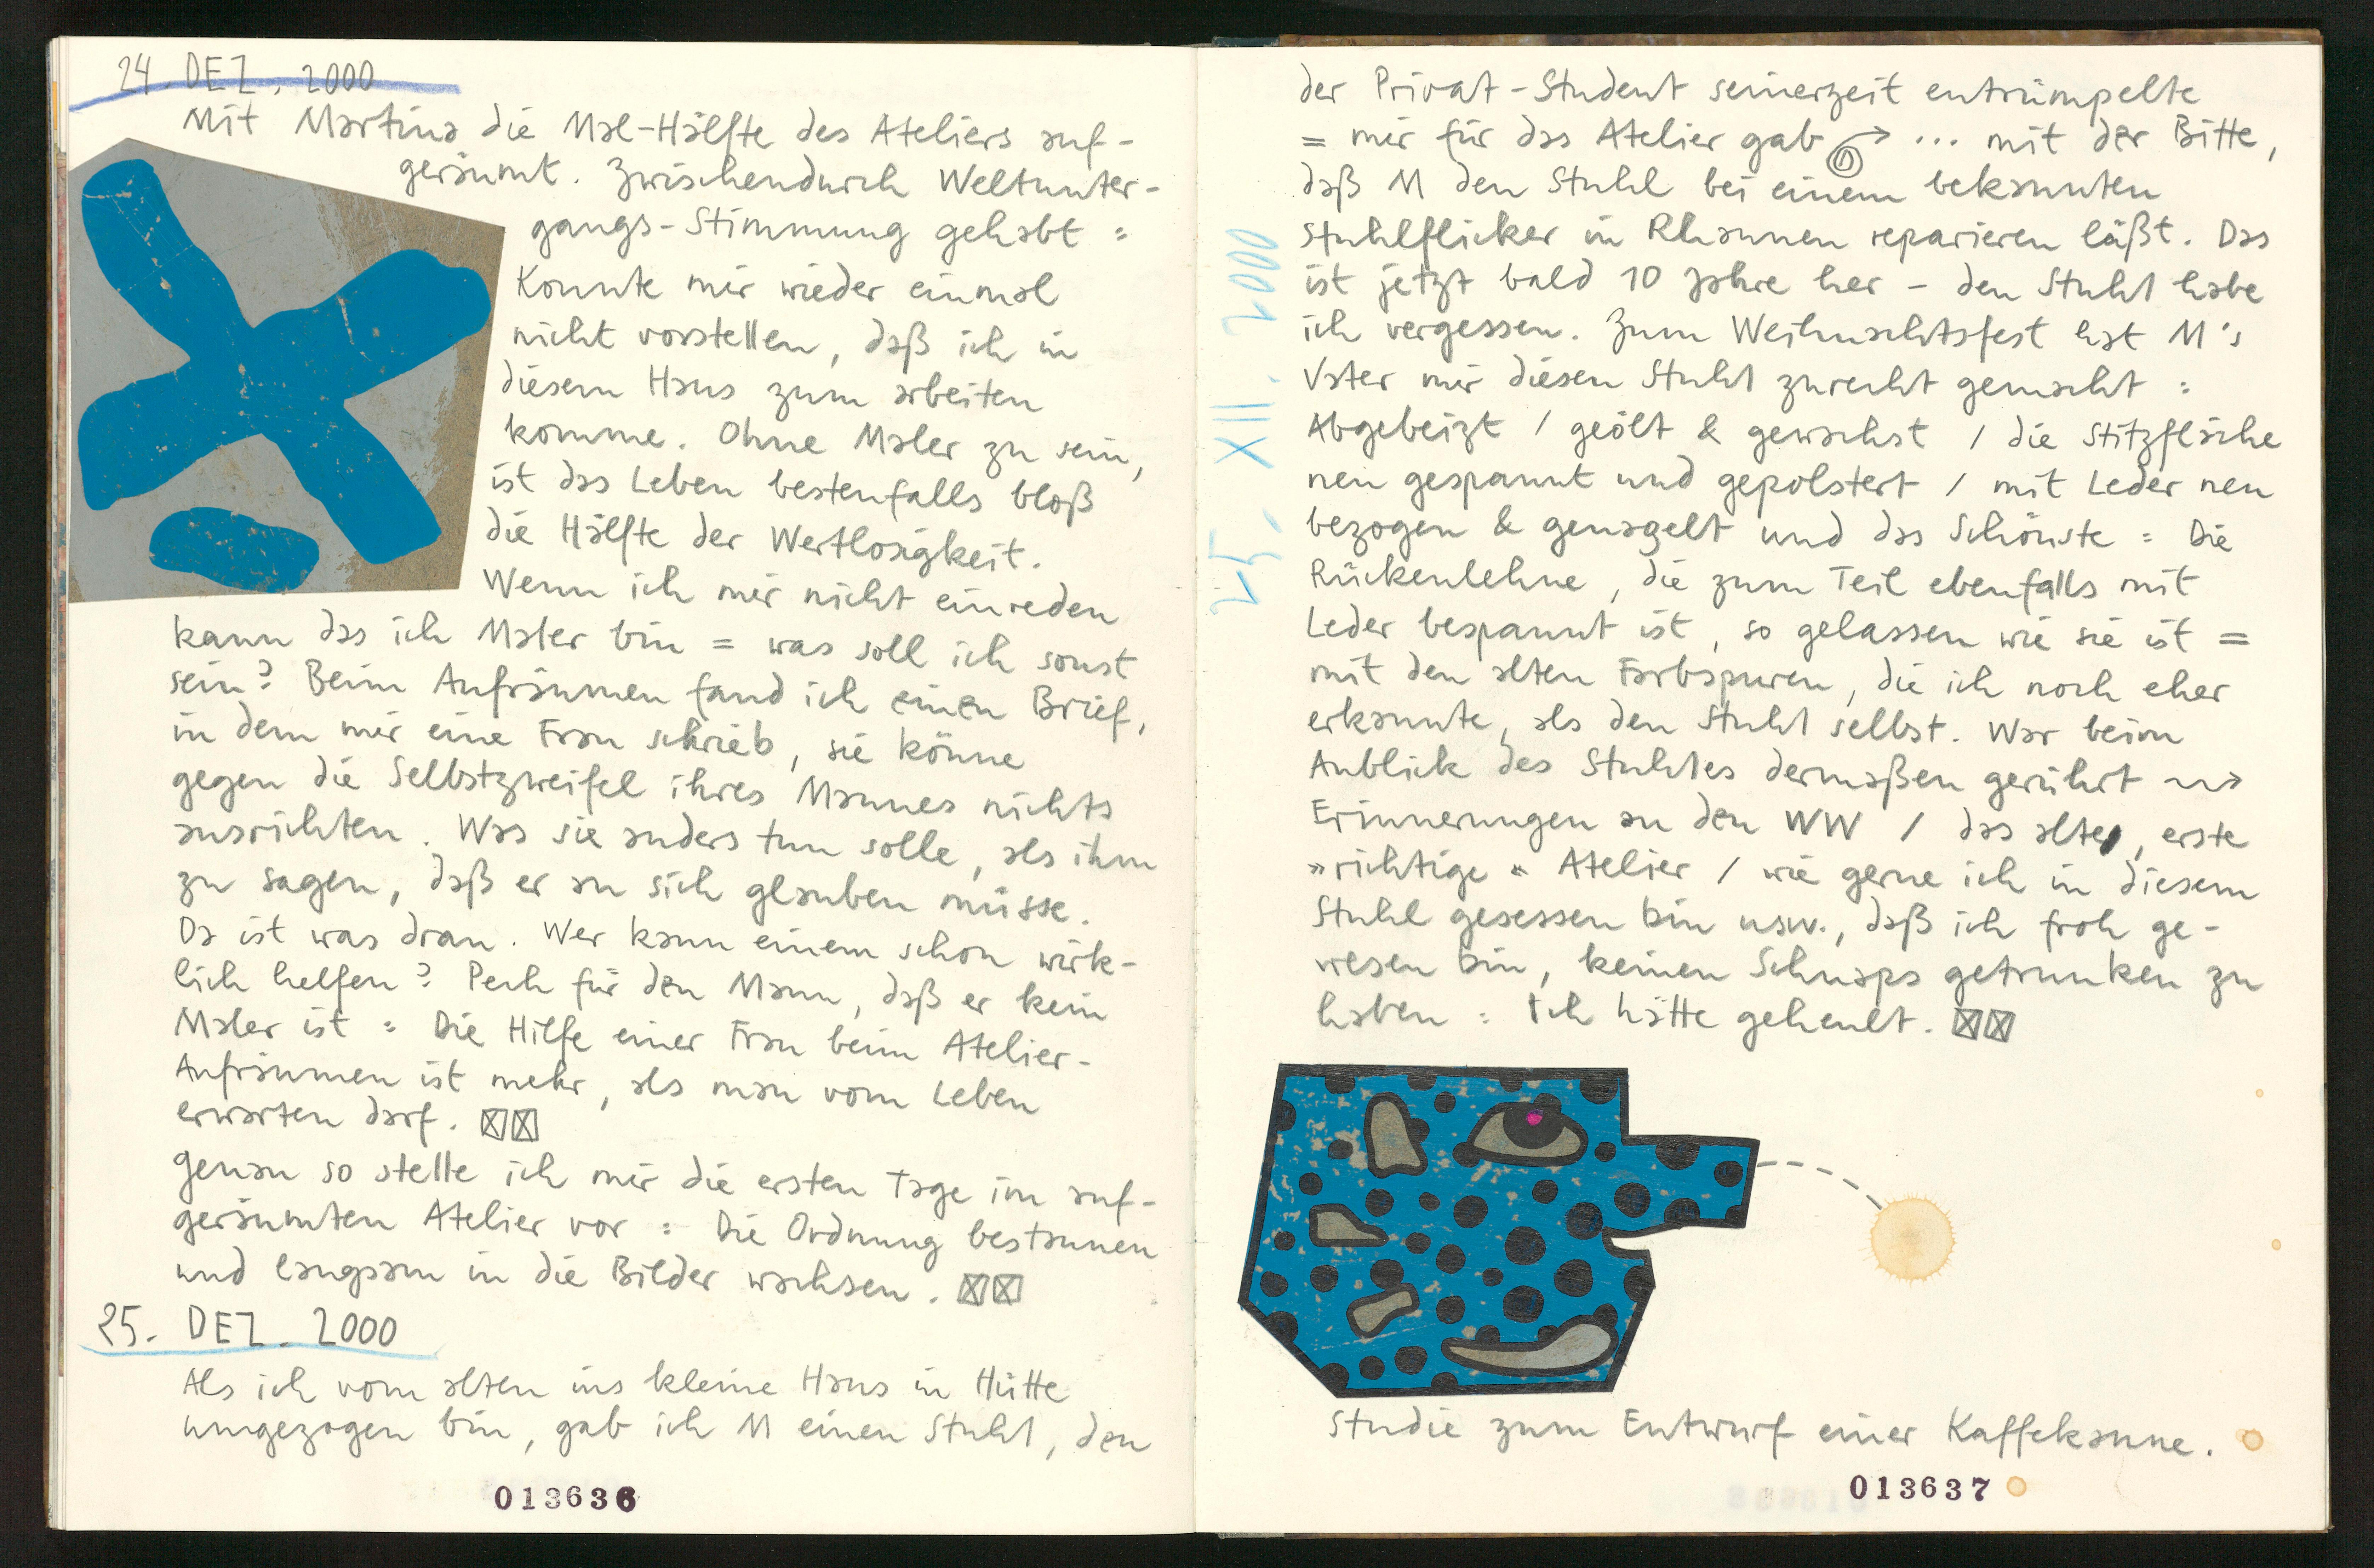 24. DEZ. 2000
Mit Martina die Mal-Hälfte des Ateliers auf-
geräumt. Zwischendurch Weltunter-
gangs-Stimmung gehabt =
Konnte mir wieder einmal
nicht vorstellen, daß ich in
diesem Haus zum arbeiten
komme. Ohne Maler zu sein,
ist das Leben bestenfalls bloß
die Hälfte der Wertlosigkeit.
Wenn ich mir nicht einreden
kann das ich Maler bin = was soll ich sonst
sein? Beim Aufräumen fand ich einen Brief,
in dem mir eine Frau schrieb, sie könne
gegen die Selbstzweifel ihres Mannes nichts
ausrichten. Was sie anders tun solle, als ihm
zu sagen, daß er an sich glauben müsse.
Da ist was dran. Wer kann einem schon wirk-
lich helfen? Pech für den Mann, daß er kein
Maler ist = Die Hilfe einer Frau beim Atelier-
Aufräumen ist mehr, als man vom Leben
erwarten darf. ☒☒
Genau so stelle ich mir die ersten Tage im auf-
geräumten Atelier vor = Die Ordnung bestaunen
und langsam in die Bilder wachsen. ☒☒
25. DEZ. 2000
Als ich vom alten ins kleine Haus in Hütte
umgezogen bin, gab ich M einen Stuhl, den
013636
25. XII. 2000
der Privat-Student seinerzeit entrümpelte
= mir für das Atelier gab → ... mit der Bitte,
daß M den Stuhl bei einem bekannten
Stuhlflicker in Rhaunen reparieren läßt. Das
ist jetzt bald 10 Jahre her – den Stuhl habe
ich vergessen. Zum Weihnachtsfest hat M's
Vater mir diesen Stuhl zurecht gemacht =
Abgebeizt / geölt & gewachst / die Stitzfläche
neu gespannt und gepolstert / mit Leder neu
bezogen & genagelt und das Schönste = Die
Rückenlehne, die zum Teil ebenfalls mit
Leder bespannt ist, so gelassen wie sie ist =
mit den alten Farbspuren, die ich noch eher
erkannte, als den Stuhl selbst. War beim
Anblick des Stuhles dermaßen gerührt →
Erinnerungen an den WW / das alte, erste
»richtige« Atelier / wie gerne ich in diesem
Stuhl gesessen bin usw., daß ich froh ge-
wesen bin, keinen Schnaps getrunken zu
haben = Ich hätte geheult. ☒☒
Studie zum Entwurf einer Kaffekanne.
013637